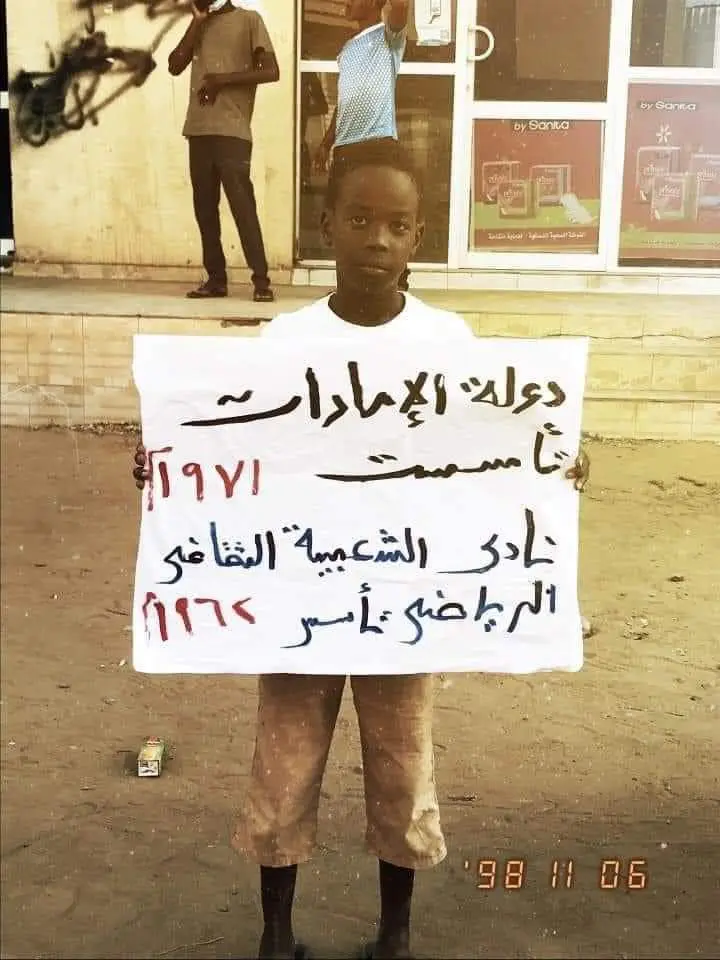 by Sanita
by Sanita
دولة الإمارات
تأسست
١٩٧١م
نادي الشعبية الثقافي
الرياضي تأسس ١٩٦٢م
'98 11 06